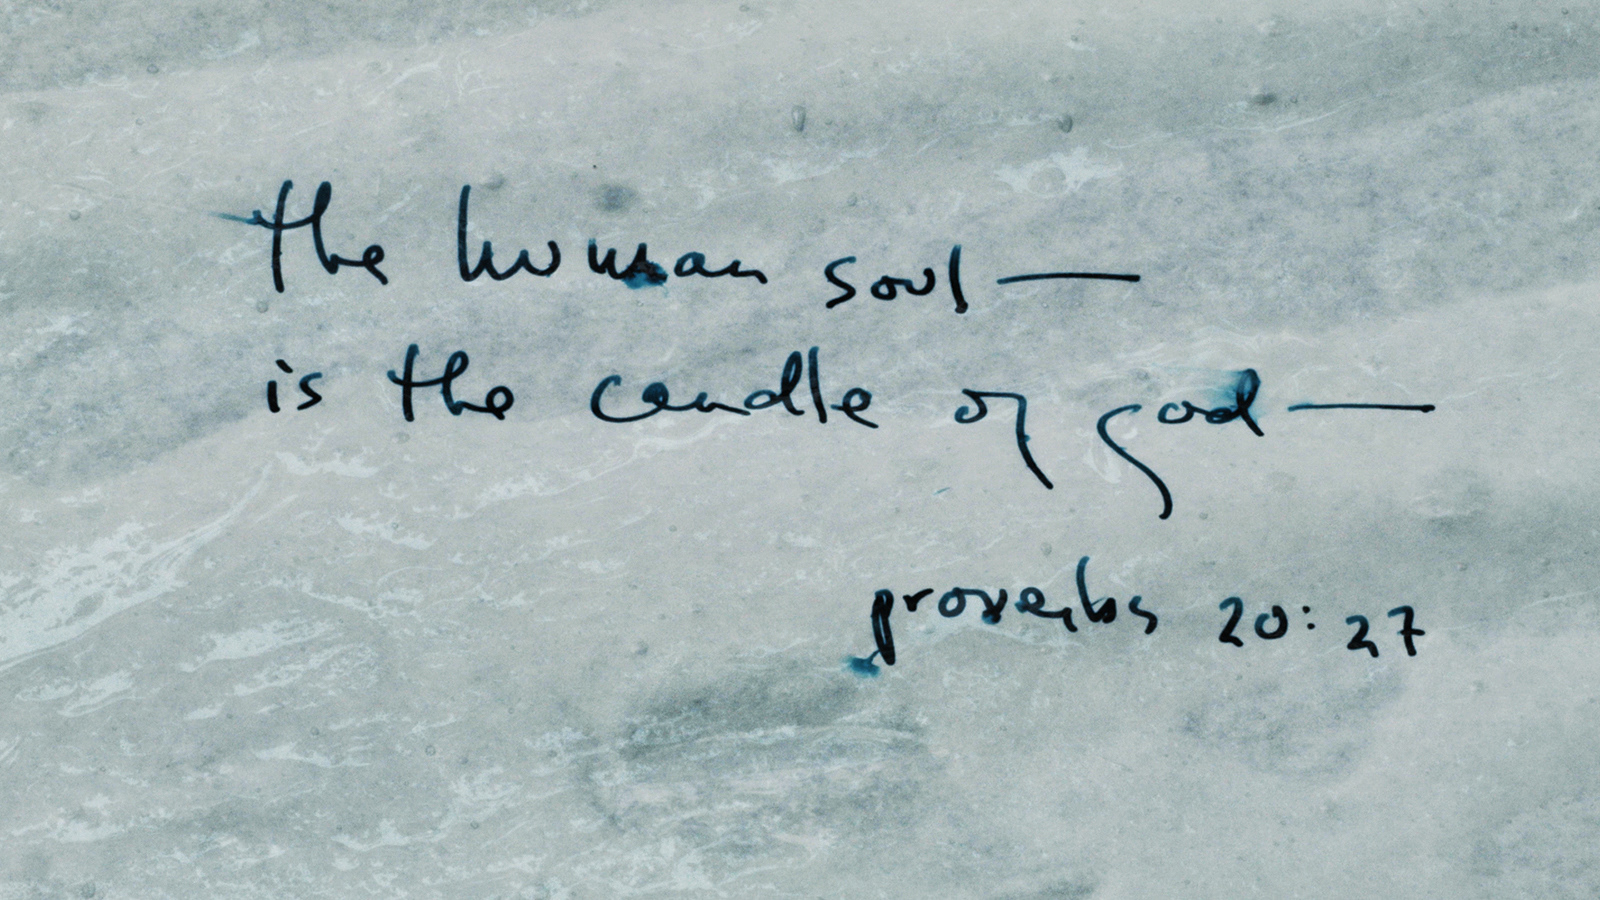 the human soul —
is the candle of god —
proverbs 20:27